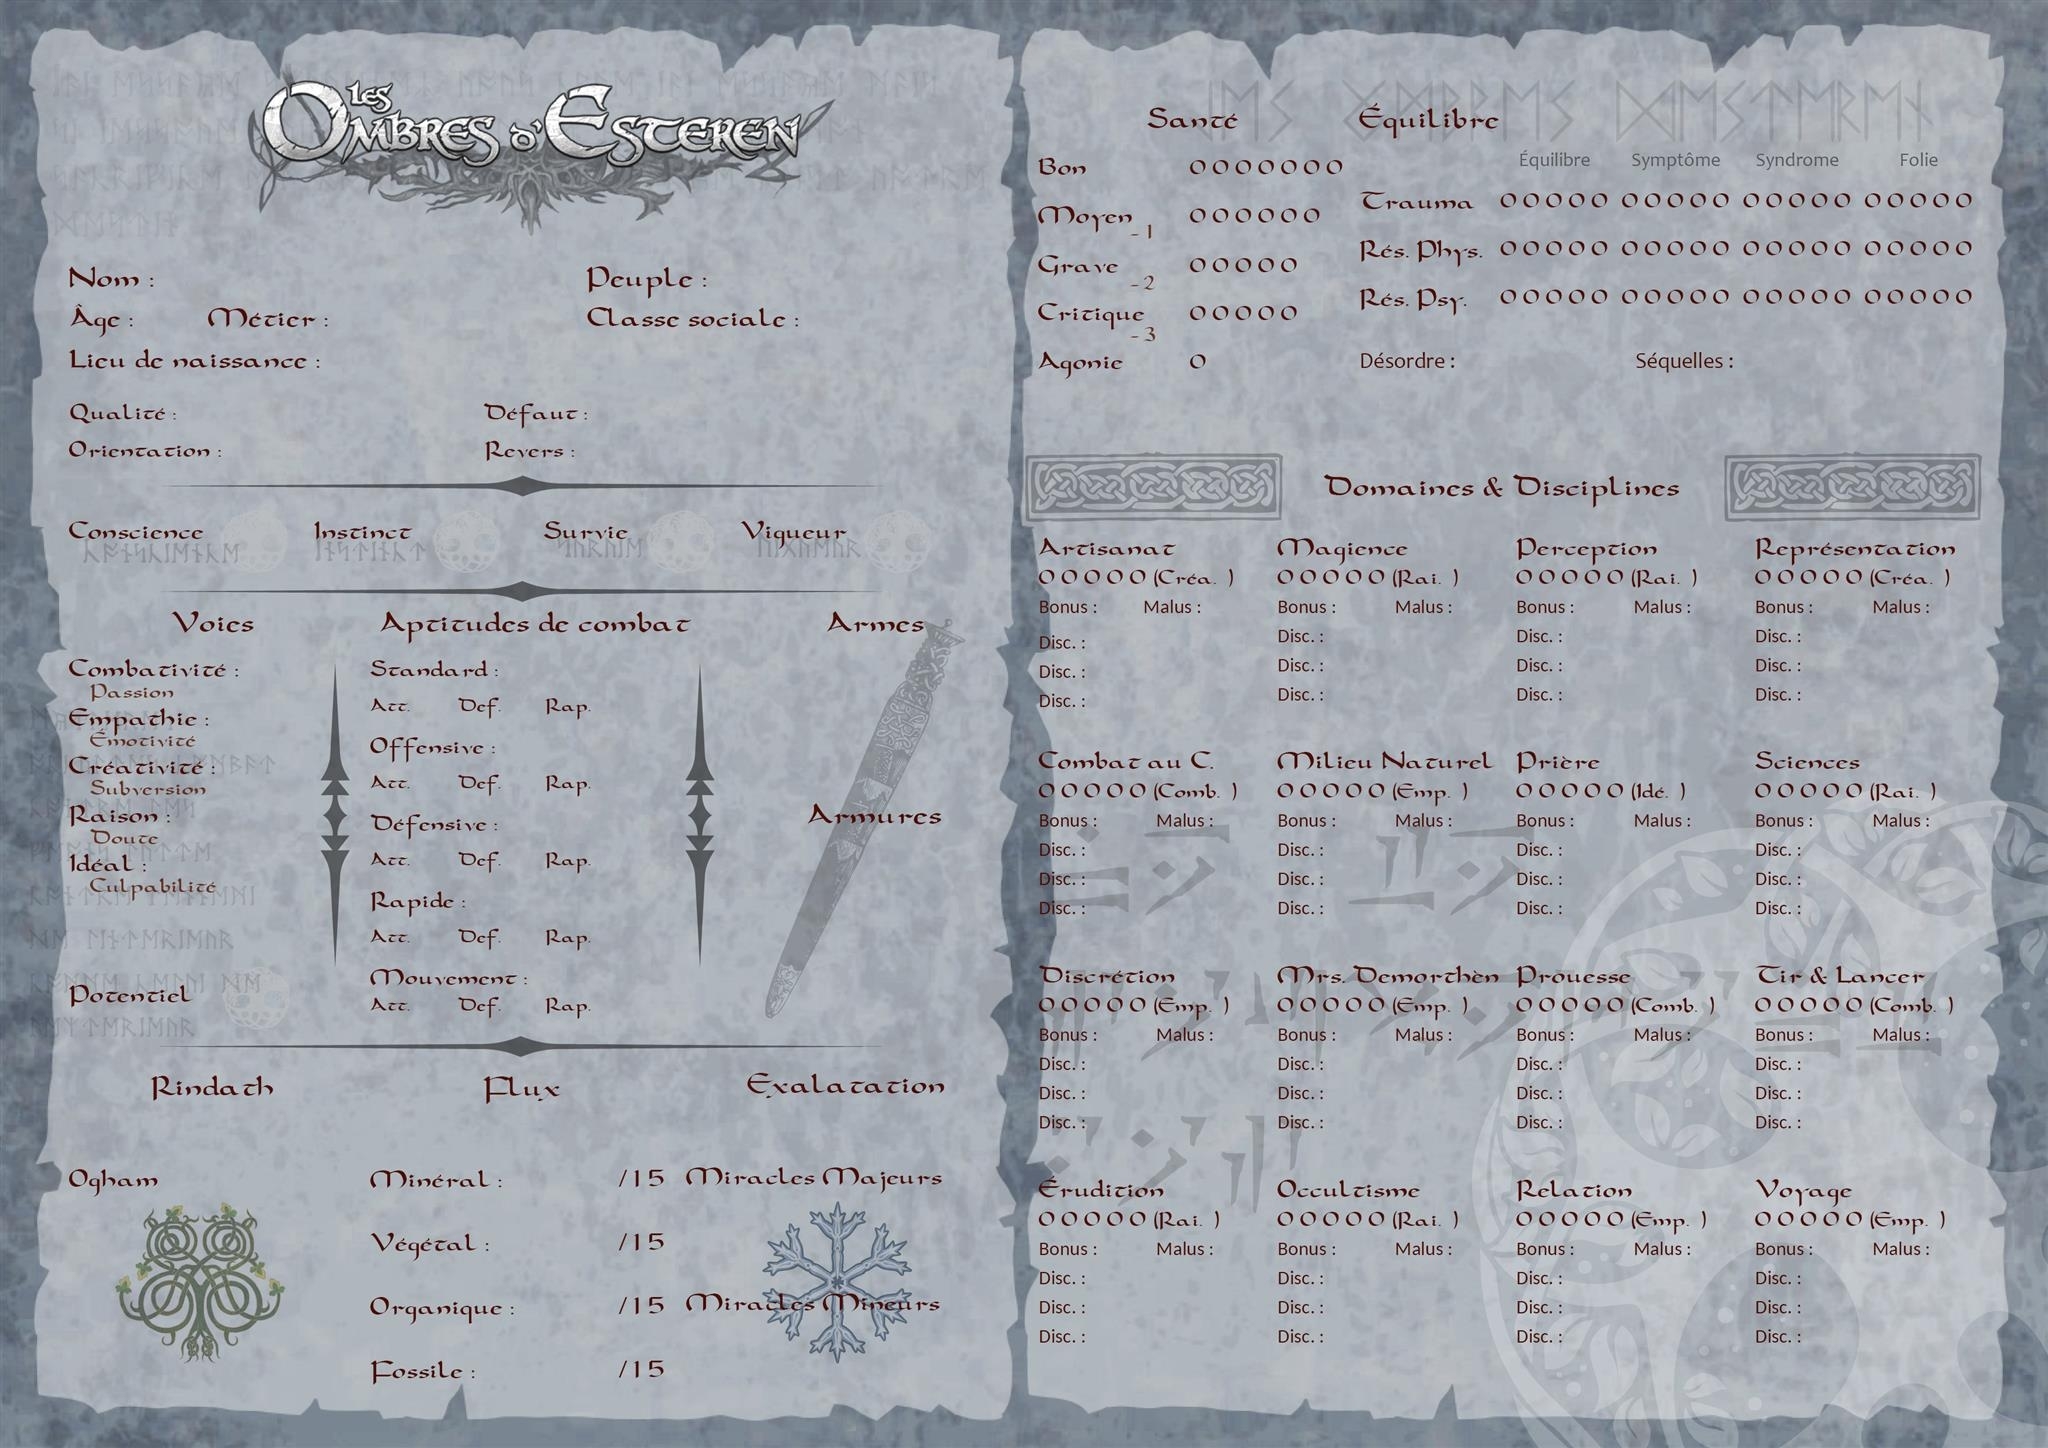 Les
Ombres d'Esteren
Nom :
Peuple :
Âge : Métier :
Classe sociale :
Lieu de naissance :
Qualité :
Défaut :
Orientation :
Revers :
Conscience Instinct Survie Vigueur
Voies
Combativité :
Passion
Empathie :
Émotivité
Créativité :
Subversion
Raison :
Doute
Idéal :
Culpabilité
Potentiel
Aptitudes de combat
Standard :
Att. Def. Rap.
Offensive :
Att. Def. Rap.
Défensive :
Att. Def. Rap.
Rapide :
Att. Def. Rap.
Mouvement :
Att. Def. Rap.
Armes
Armures
Rindath
Ogham
Flux
Minéral : /15
Végétal : /15
Organique : /15
Fossile : /15
Exalatation
Miracles Majeurs
Miracles Mineurs
Santé
Bon O O O O O O O
Moyen O O O O O O
-1
Grave O O O O O
-2
Critique O O O O O
-3
Agonie O
Équilibre
Équilibre Symptôme Syndrome Folie
Trauma O O O O O O O O O O O O O O O O O O O O
Rés. Phys. O O O O O O O O O O O O O O O O O O O O
Rés. Psy. O O O O O O O O O O O O O O O O O O O O
Désordre : Séquelles :
Domaines & Disciplines
Artisanat Magience Perception Représentation
O O O O O (Créa. ) O O O O O (Rai. ) O O O O O (Rai. ) O O O O O (Créa. )
Bonus : Malus : Bonus : Malus : Bonus : Malus : Bonus : Malus :
Disc. : Disc. : Disc. : Disc. :
Disc. : Disc. : Disc. : Disc. :
Disc. : Disc. : Disc. : Disc. :
Combat au C. Milieu Naturel Prière Sciences
O O O O O (Comb. ) O O O O O (Emp. ) O O O O O (Idé. ) O O O O O (Rai. )
Bonus : Malus : Bonus : Malus : Bonus : Malus : Bonus : Malus :
Disc. : Disc. : Disc. : Disc. :
Disc. : Disc. : Disc. : Disc. :
Disc. : Disc. : Disc. : Disc. :
Discrétion Mrs. Demorthèn Prouesse Tir & Lancer
O O O O O (Emp. ) O O O O O (Emp. ) O O O O O (Comb. ) O O O O O (Comb. )
Bonus : Malus : Bonus : Malus : Bonus : Malus : Bonus : Malus :
Disc. : Disc. : Disc. : Disc. :
Disc. : Disc. : Disc. : Disc. :
Disc. : Disc. : Disc. : Disc. :
Érudition Occultisme Relation Voyage
O O O O O (Rai. ) O O O O O (Rai. ) O O O O O (Emp. ) O O O O O (Emp. )
Bonus : Malus : Bonus : Malus : Bonus : Malus : Bonus : Malus :
Disc. : Disc. : Disc. : Disc. :
Disc. : Disc. : Disc. : Disc. :
Disc. : Disc. : Disc. : Disc. :